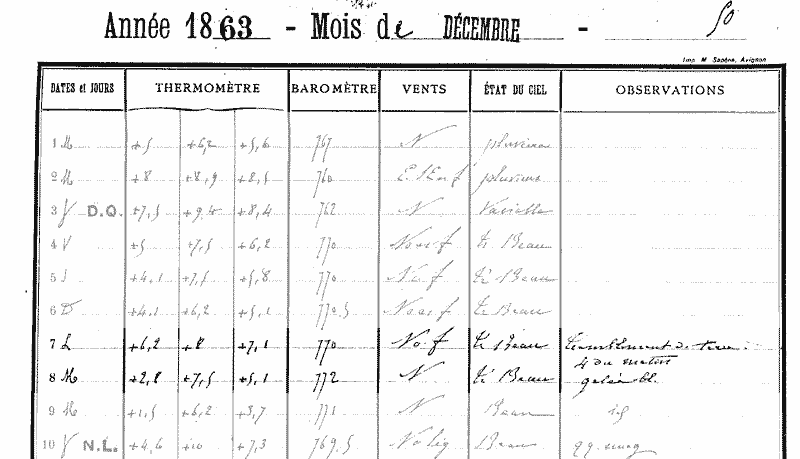 Année 1863 - Mois de DÉCEMBRE - 50
Imp. M. Sabère, Avignon
DATES et JOURS THERMOMÈTRE BAROMÈTRE VENTS ÉTAT DU CIEL OBSERVATIONS
1 M +5 +6,2 +5,6 767 N pluvieux
2 M +8 +8,9 +8,5 760 pluvieux
3 J D.Q. +7,5 +9,4 +8,4 762 N Variable
4 V +5 +7,5 +6,2 770 tè Beau
5 S +4,1 +7,5 +5,8 770 tè Beau
6 D +4,1 +6,2 +5,1 770.5 tè Beau
7 L +6,2 +8 +7,1 770 No f tè Beau tremblement de terre
4 du matin
8 M +2,8 +7,5 +5,1 772 N tè Beau gelée bl.
9 M +1,5 +6,2 +3,7 771 N Beau id
10 J N.L. +4,6 +10 +7,3 769.5 Beau qq. nuag